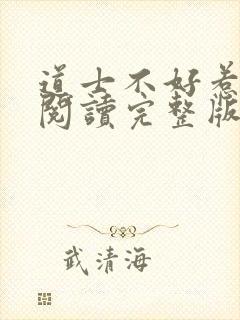 道士不好惹
閱讀完整版
武清海